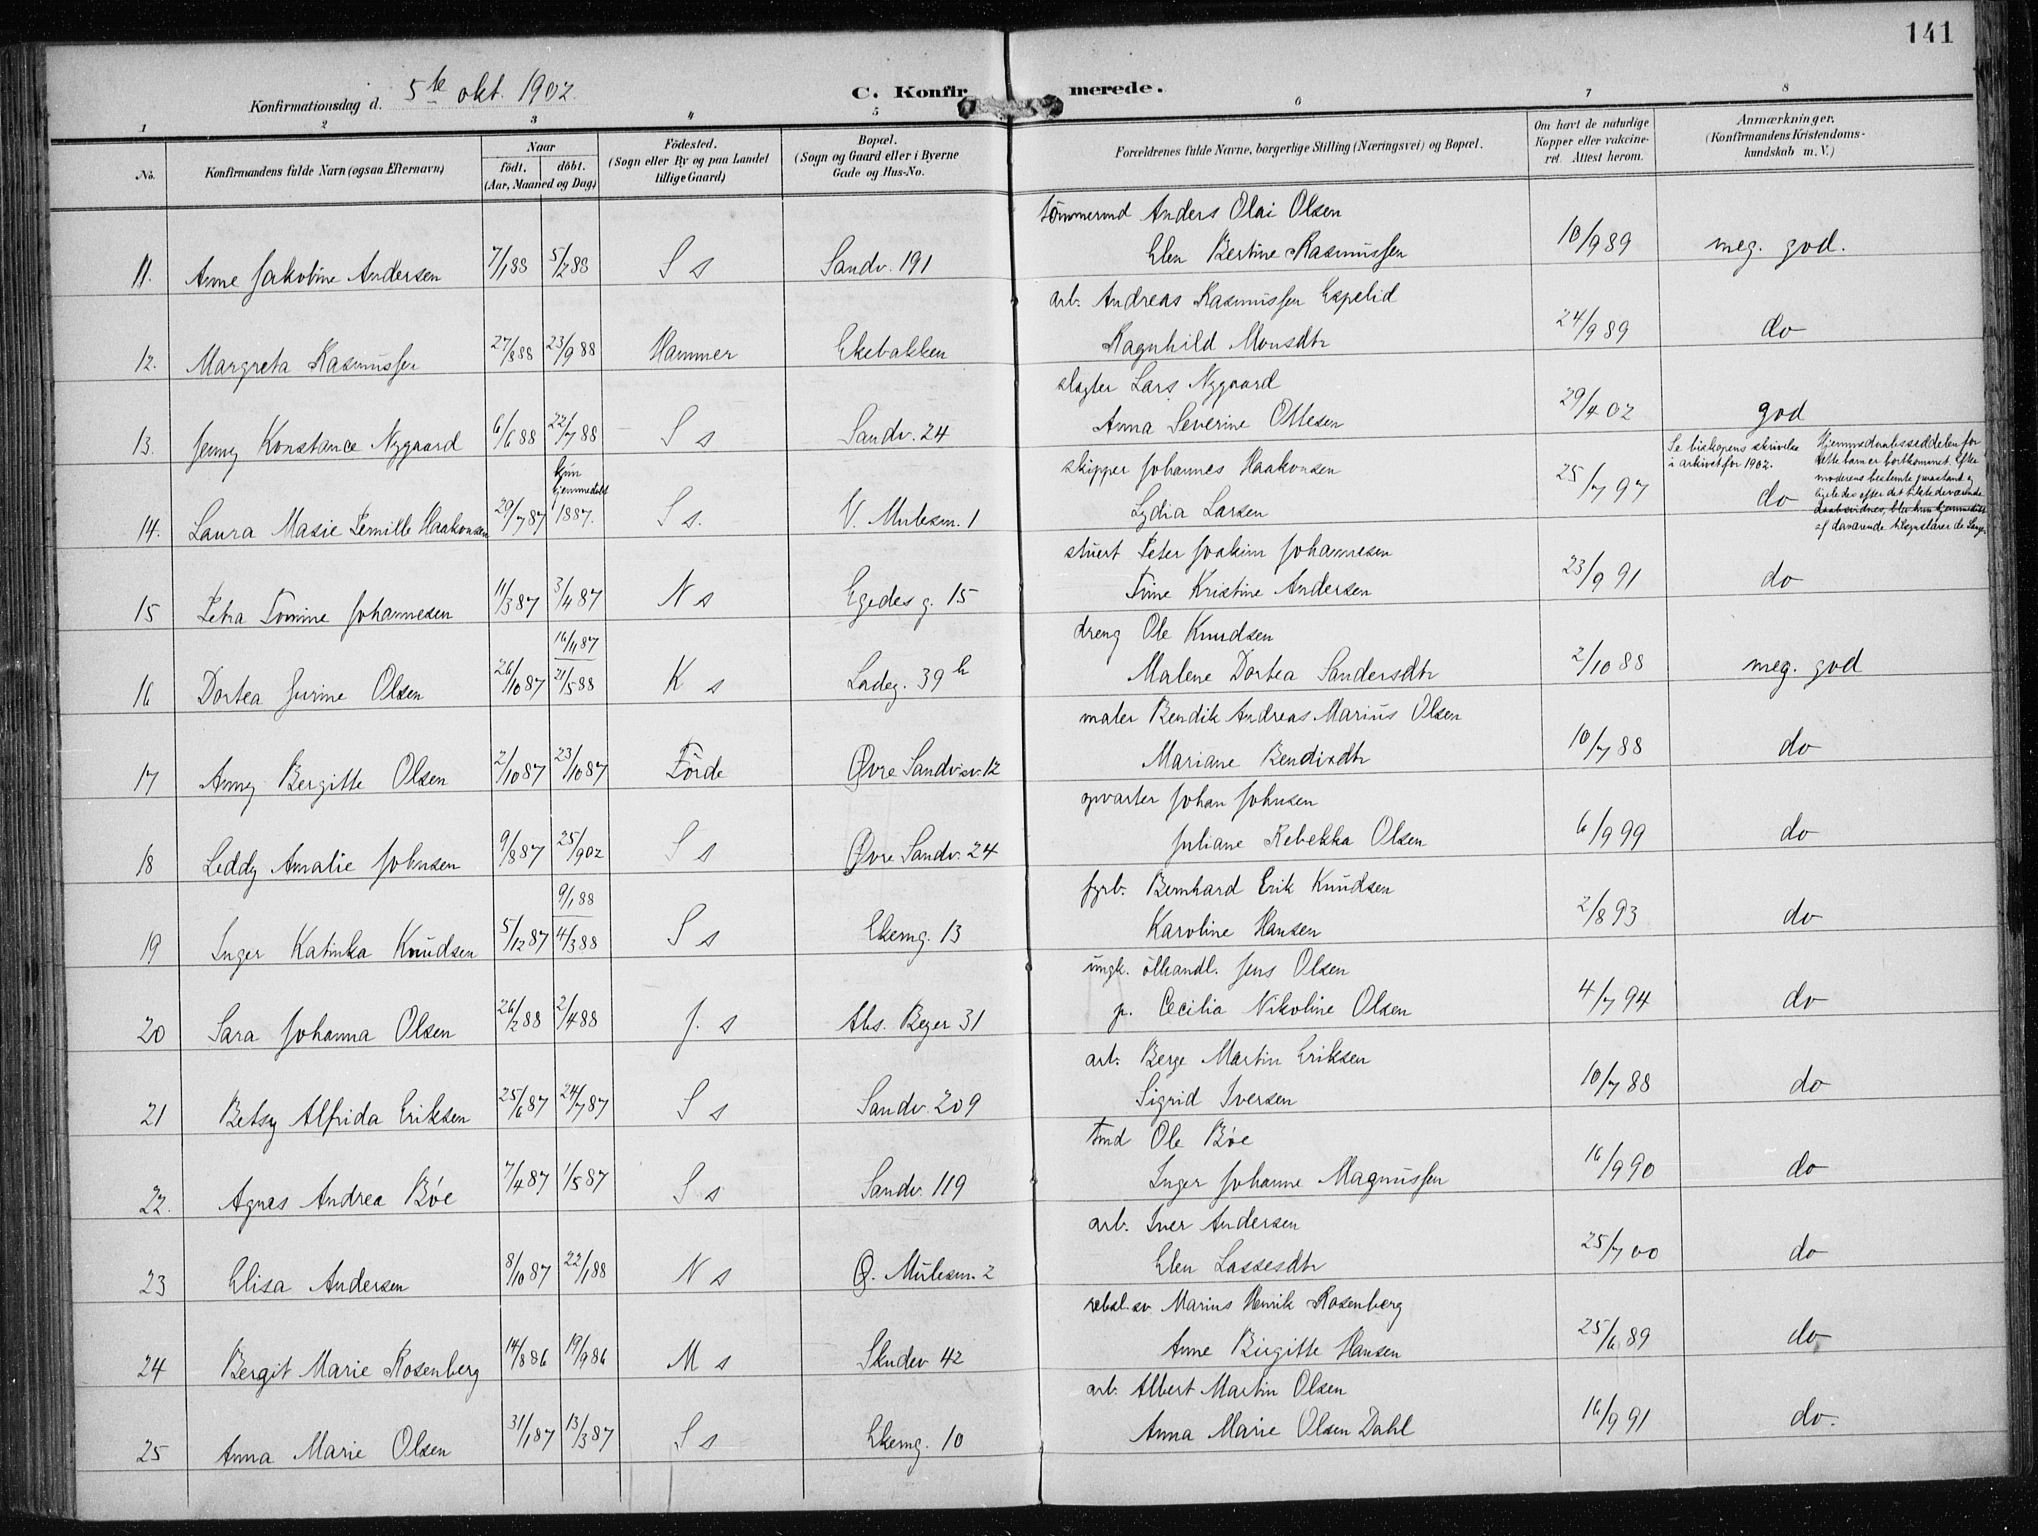 141
Konfirmationsdag d. 5te okt. 1902.
C. Konfir merede.
1 2 3 4 5 6 7 8
No.
Konfirmandens fulde Navn (ogsaa Efternavn)
Naar
födt. döbt.
(Aar, Maaned og Dag)
Födested.
(Sogn eller By og paa Landet
tillige Gaard)
Bopæl.
(Sogn og Gaard eller i Byerne
Gade og Hus-No.
Forældrenes fulde Navne, borgerlige Stilling (Næringsvei) og Bopæl.
Om havt de naturlige
Kopper eller vakcine-
ret. Attest herom.
Anmærkninger.
(Konfirmandens Kristendoms-
kundskab m. V.)
tömmermd Anders Olai Olsen
11. Anne Jakobine Andersen 7/1 88 5/2 88 S s Sandv. 191 Elen Bertine Rasmussen 10/9 89 meg. god.
arb. Andreas Rasmussen Espelid
12. Margreta Rasmussen 27/8 88 23/9 88 Hammer Ekebakken Ragnhild Monsdtr 24/9 89 do
slagter Lars Nygaard
13. Jenny Konstance Nygaard 6/6 88 22/7 88 S s Sandv. 24 Anna Severine Ottesen 29/4 02 god
skipper Johannes Haakonsen
Se biskopens skrivelse
i arkivet for 1902.
Hjemmedaabsseddelen for
dette barn er bortkommet. Efter
moderens bestemte paastand og
ligeledes efter det
daabsvidnes, blev hun hjemmedöbt
af daværende
14. Laura Masie Pernille Haakonsen 29/7 87 kun hjemmedöbt 1887. S s. V. Mulesm. 1 Lydia Larsen 25/7 97 do
stuert Peter Joakim Johannesen
15 Petra Tomine Johannesen 11/3 87 3/4 87 N s Egedes g. 15 Tine Kristine Andersen 23/9 91 do
dreng Ole Knudsen
16 Dortea Jurine Olsen 26/10 87 16/11 87 21/5 88 K s Ladeg. 39 h Malene Dortea Sandersdtr 2/10 88 meg. god
maler Bendik Andreas Marius Olsen
17 Anny Bergitte Olsen 2/10 87 23/10 87 Förde Øvre Sandvsv. 12 Mariane Bendixdtr 10/7 88 do
opvarter Johan Johnsen
18 Leddy Amalie Johnsen 9/8 87 25/9 02 S s Øvre Sandv. 24 Juliane Rebekka Olsen 6/9 99 do
fyrb. Bernhard Erik Knudsen
19 Inger Katinka Knudsen 5/12 87 9/1 88 4/3 88 S s Ekerng. 13 Karoline Hansen 2/8 93 do
ungk. ölhandl. Jens Olsen
20 Sara Johanna Olsen 26/2 88 2/4 88 J. s Abs. Beyer 31 p. Cecilia Nikoline Olsen 4/7 94 do
arb. Berge Martin Eriksen
21 Betsy Alfrida Eriksen 25/6 87 24/7 87 S s Sandv. 209 Sigrid Iversen 10/7 88 do
tmd Ole Böe
22. Agnes Andrea Böe 7/4 87 1/5 87 S s Sandv. 119 Inger Johanne Magnussen 16/9 90 do
arb. Iver Andersen
23 Elisa Andersen 8/10 87 22/1 88 N s Ø. Mulesm. 2 Elen Lassesdtr 25/7 00 do
rebsl. sv Marius Henrik Rosenberg
24 Bergit Marie Rosenberg 14/8 86 19/9 86 M s Sandv 42 Anne Birgitte Hansen 25/6 89 do
arb. Albert Martin Olsen
25 Anna Marie Olsen 31/1 87 13/3 87 S s Ekerng. 10 Anna Marie Olsen Dahl 16/9 91 do.